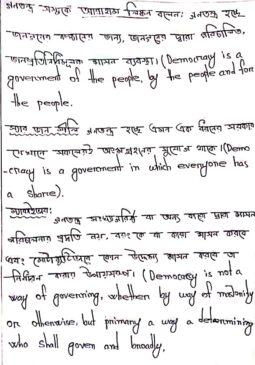 গনতন্ত্র সম্পর্কে আব্রাহাম লিংকন বলেন: গনতন্ত্র হচ্ছে
জনগনের কল্যানের জন্য, জনগনের দ্বারা পরিচালিত,
জনপ্রতিনিধিত্বমূলক শাসন ব্যবস্থা। (Democray is a
government of the people, by the people and for
the people.
স্যার জন সীলি গনতন্ত্র হচ্ছে এমন এক ধরনের সরকার
যেখানে সকলেরই অংশগ্রহনের সুযোগ থাকে। (Demo
-cracy is a government in which everyone has
a share).
গনতন্ত্র সংখ্যাগরিষ্ঠ বা অন্য কারো দ্বারা শাসন
পরিচালনার পদ্ধতি নয়, বরং কে বা কারা শাসন করবে
এবং মোটামুটিভাবে কোন উদ্দেশ্যে শাসন করবে তা
-নির্ধারন করার উপায়স্বরূপ। (Democracy is not a
way of governing, whethen by way of
or otherwise, but primary a way a determining
who shall goven and broadly,